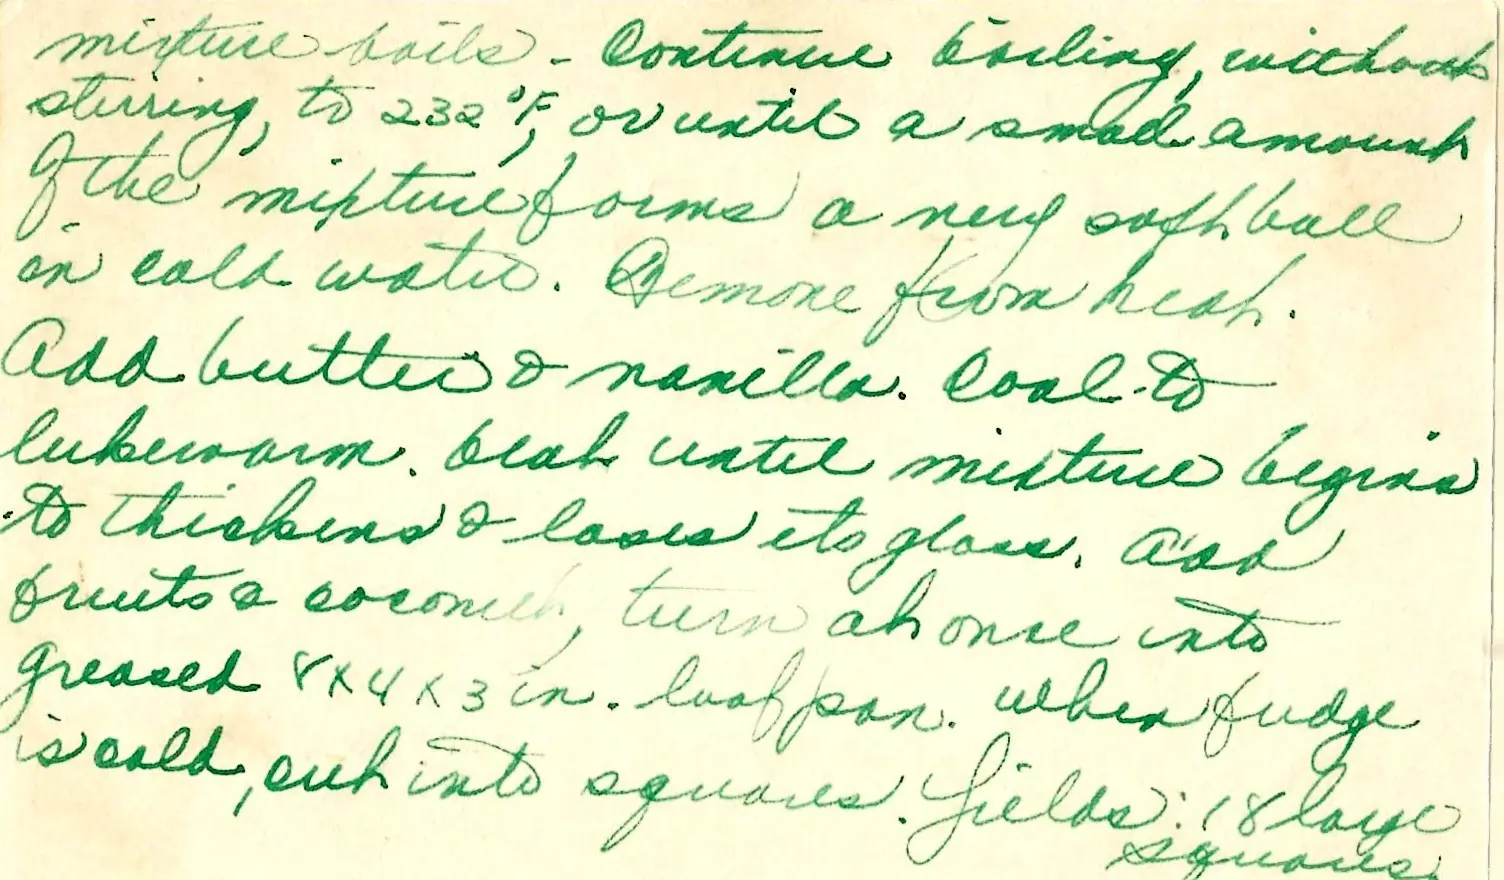 mixture boils - Continue boiling, without
stirring, to 232 °F, or until a small amount
of the mixture forms a very soft ball
in cold water. Remove from heat.
Add butter & vanilla. Cool to
lukewarm. beat until mixture begins
to thickens & loses its gloss. Add
fruits & coconut, turn at once into
greased 8x4x3 in. loaf pan. When fudge
is cold, cut into squares. Yields: 18 large
squares.